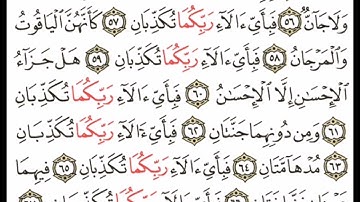 وَلَا جَآنٌّ ٥٦ فَبِأَيِّ ءَالَآءِ رَبِّكُمَا تُكَذِّبَانِ ٥٧ كَأَنَّهُنَّ ٱلْيَاقُوتُ
وَٱلْمَرْجَانُ ٥٨ فَبِأَيِّ ءَالَآءِ رَبِّكُمَا تُكَذِّبَانِ ٥٩ هَلْ جَزَآءُ
ٱلْإِحْسَٰنِ إِلَّا ٱلْإِحْسَٰنُ ٦٠ فَبِأَيِّ ءَالَآءِ رَبِّكُمَا تُكَذِّبَانِ
٦١ وَمِن دُونِهِمَا جَنَّتَانِ ٦٢ فَبِأَيِّ ءَالَآءِ رَبِّكُمَا تُكَذِّبَانِ
٦٣ مُدْهَآمَّتَانِ ٦٤ فَبِأَيِّ ءَالَآءِ رَبِّكُمَا تُكَذِّبَانِ ٦٥ فِيهِمَا